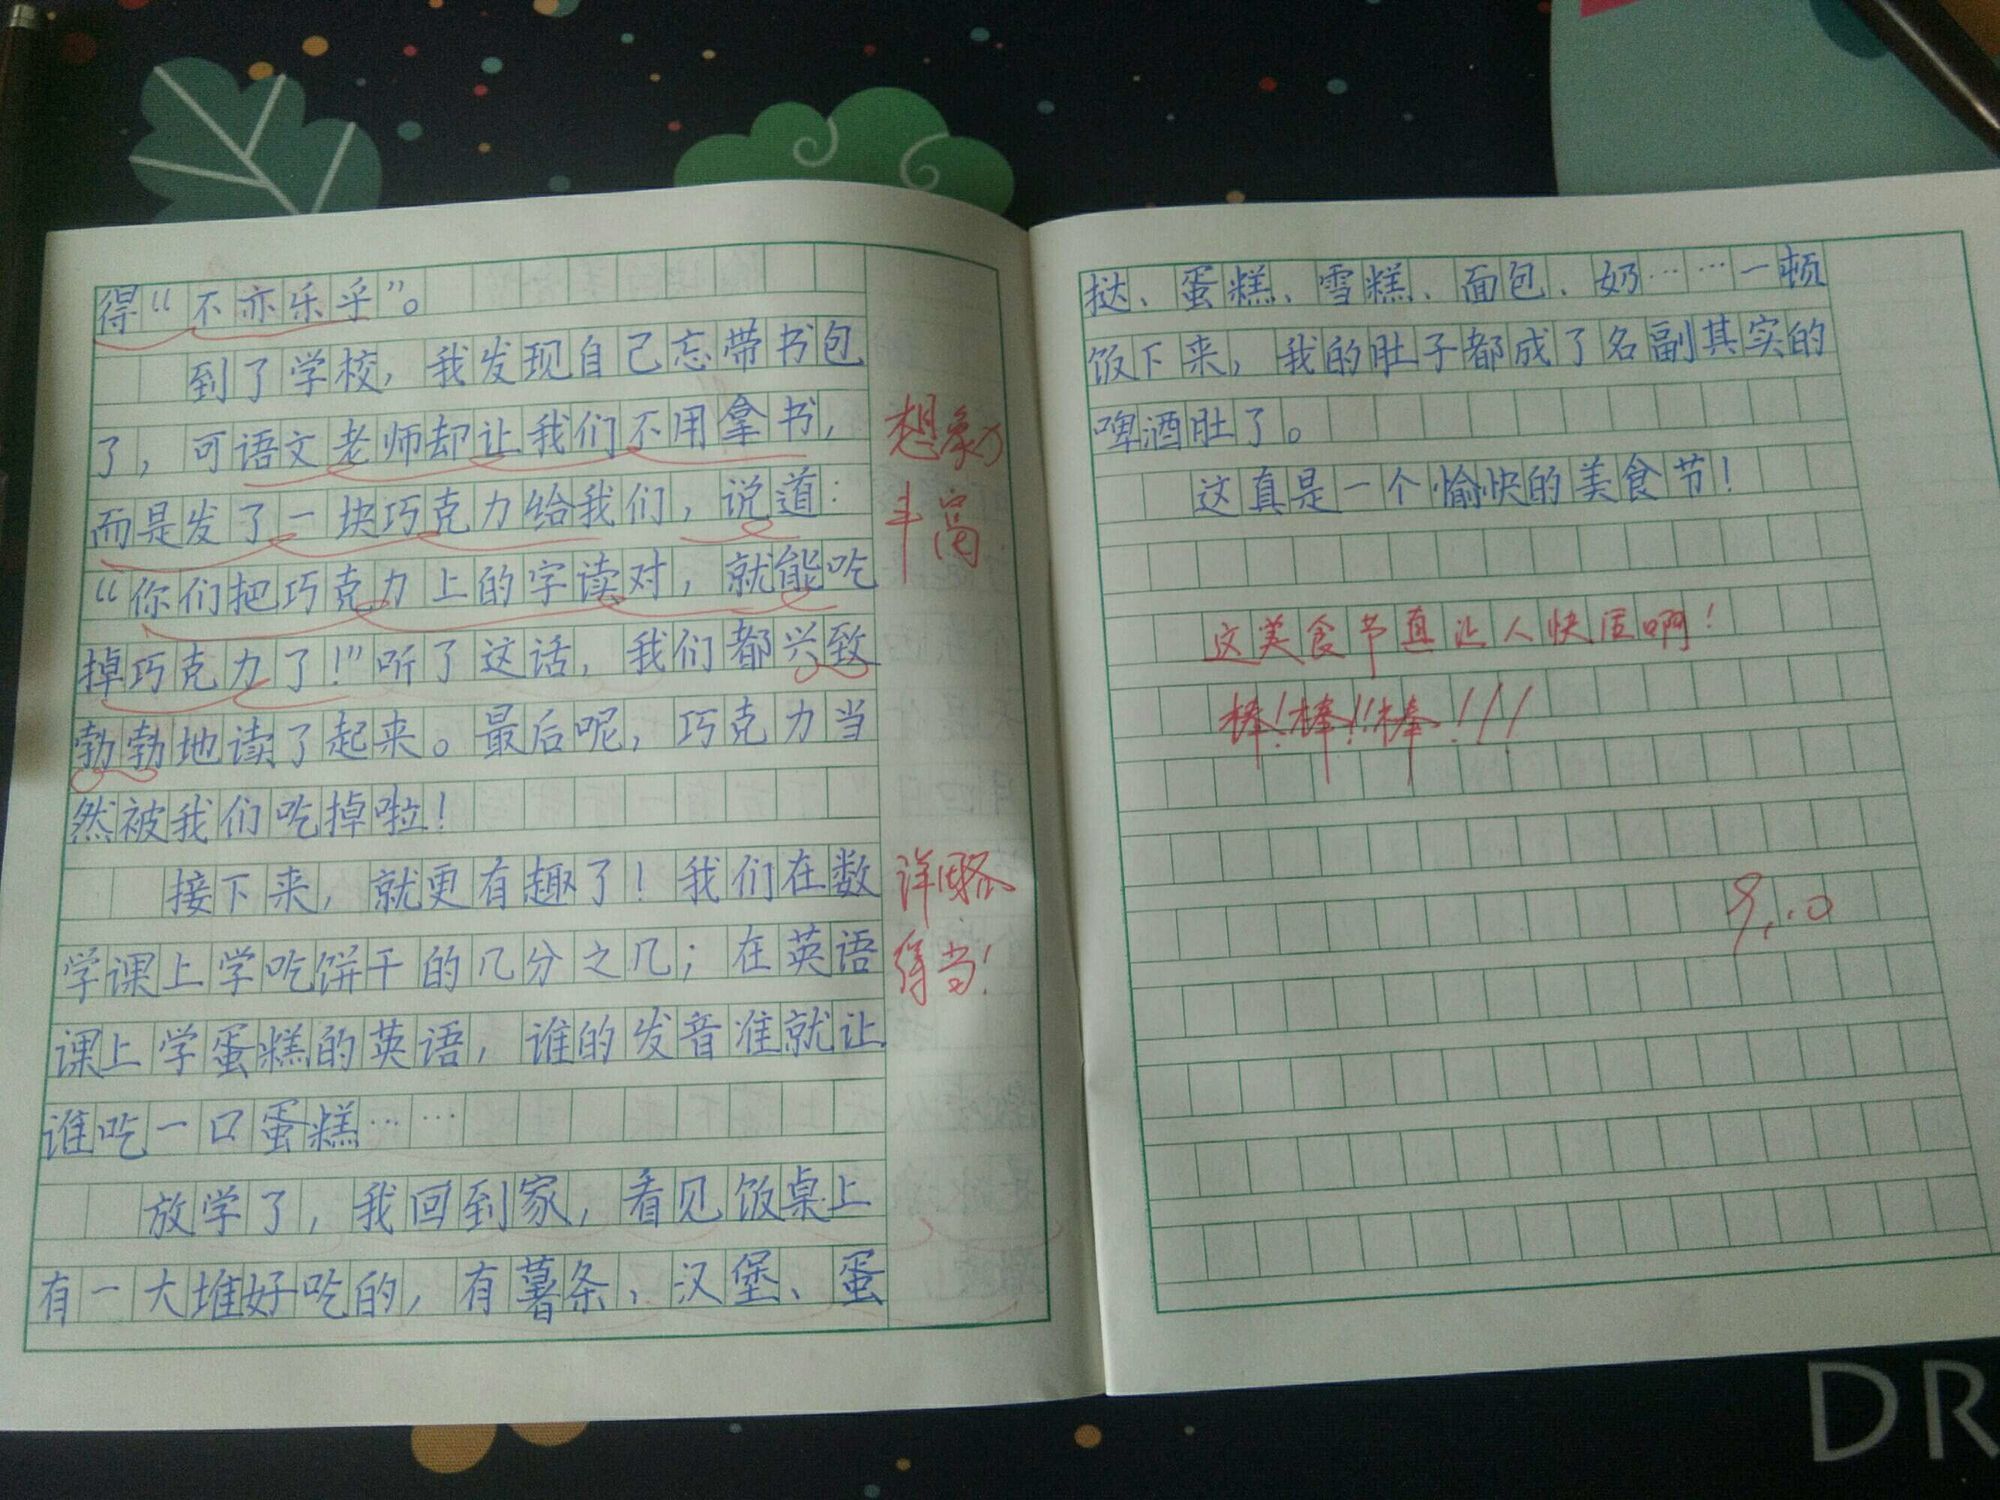 得“不亦乐乎”。
到了学校，我发现自己忘带书包
了，可语文老师却让我们不用拿书，
而是发了一块巧克力给我们，说道：
“你们把巧克力上的字读对，就能吃
掉巧克力了！”听了这话，我们都兴致
勃勃地读了起来。最后呢，巧克力当
然被我们吃掉啦！
接下来，就更有趣了！我们在数
学课上学吃饼干的几分之几；在英语
课上学蛋糕的英语，谁的发音准就让
谁吃一口蛋糕……
放学了，我回到家，看见饭桌上
有一大堆好吃的，有薯条、汉堡、蛋
想象力
丰富
详略
得当！
挞、蛋糕、雪糕、面包、奶……一顿
饭下来，我的肚子都成了名副其实的
啤酒肚了。
这真是一个愉快的美食节！
这美食节真让人快活啊！
棒！棒！！棒！！！
9.10
DR